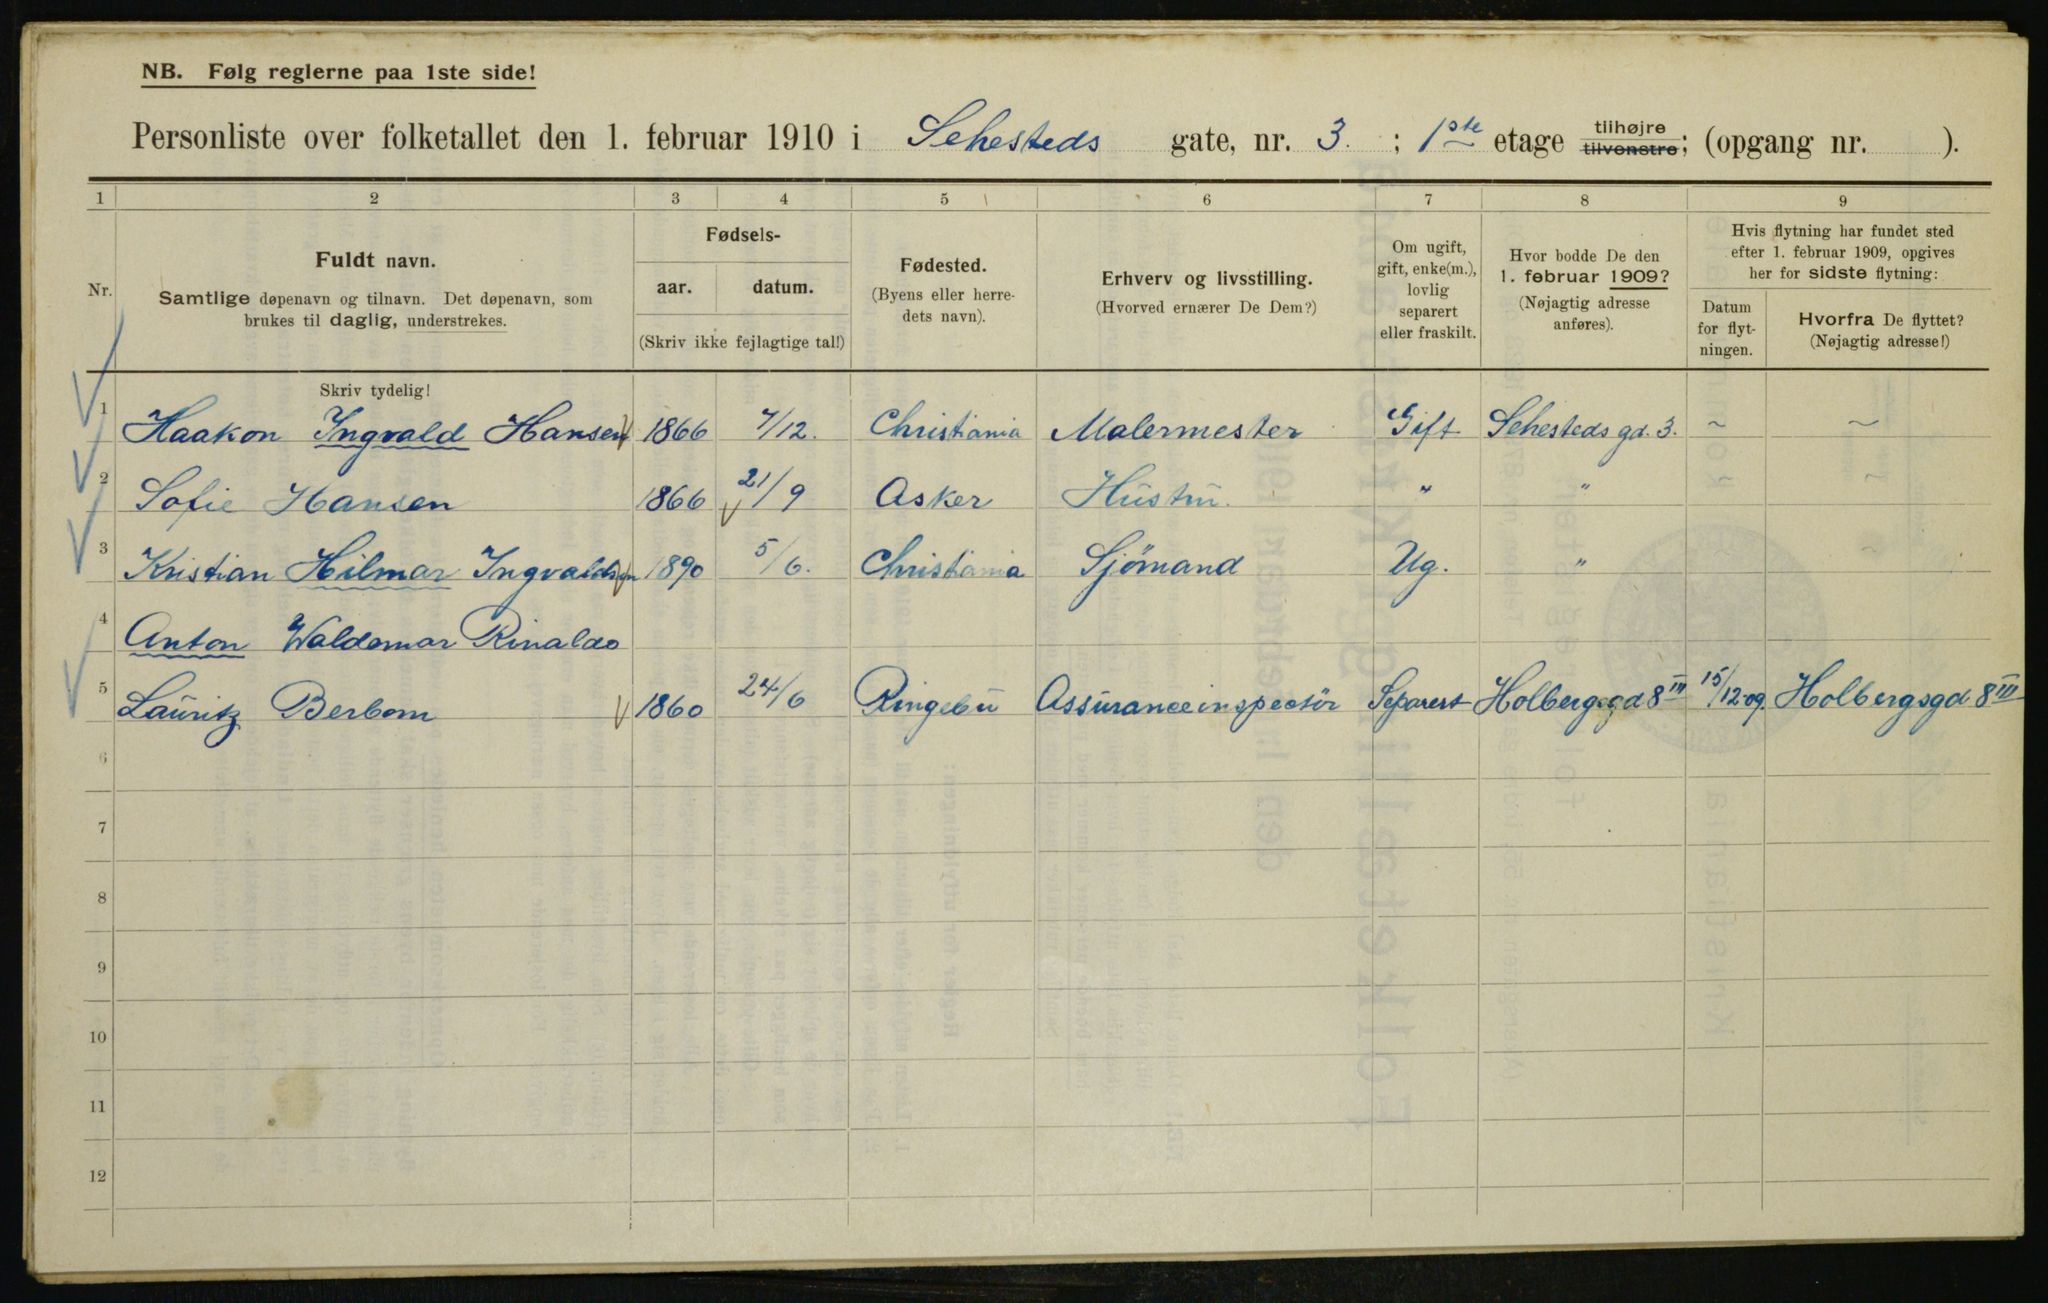 NB. Følg reglerne paa 1ste side!
Personliste over folketallet den 1. februar 1910 i Sehesteds gate, nr. 3. ; 1ste etage tilhøjre tilvenstre; (opgang nr. ).
1 2 3 4 5 6 7 8 9
Nr.
Fuldt navn.
Samtlige døpenavn og tilnavn. Det døpenavn, som
brukes til daglig, understrekes.
Skriv tydelig!
Fødsels-
aar. datum.
(Skriv ikke fejlagtige tal!)
Fødested.
(Byens eller herre-
dets navn).
Erhverv og livsstilling.
(Hvorved ernærer De Dem?)
Om ugift,
gift, enke(m.),
lovlig
separert
eller fraskilt.
Hvor bodde De den
1. februar 1909?
(Nøjagtig adresse
anføres).
Hvis flytning har fundet sted
efter 1. februar 1909, opgives
her for sidste flytning:
Datum
for flyt-
ningen.
Hvorfra De flyttet?
(Nøjagtig adresse!)
1 Haakon Ingvald Hansen 1866 7/12. Christiania Malermester Gift Sehesteds gd. 3. ~ ~
2 Sofie Hansen 1866 21/9 Asker Hustru. " "
3 Kristian Hilmar Ingvaldsen 1890 5/6. Christiania Sjømand Ug. "
4 Anton Waldemar Rinaldo
5 Lauritz Berbom 1860 24/6 Ringebu Assuranceinspectør Separert Holbergsgd 8 III 15/12-09. Holbergsgd 8 III
6
7
8
9
10
11
12